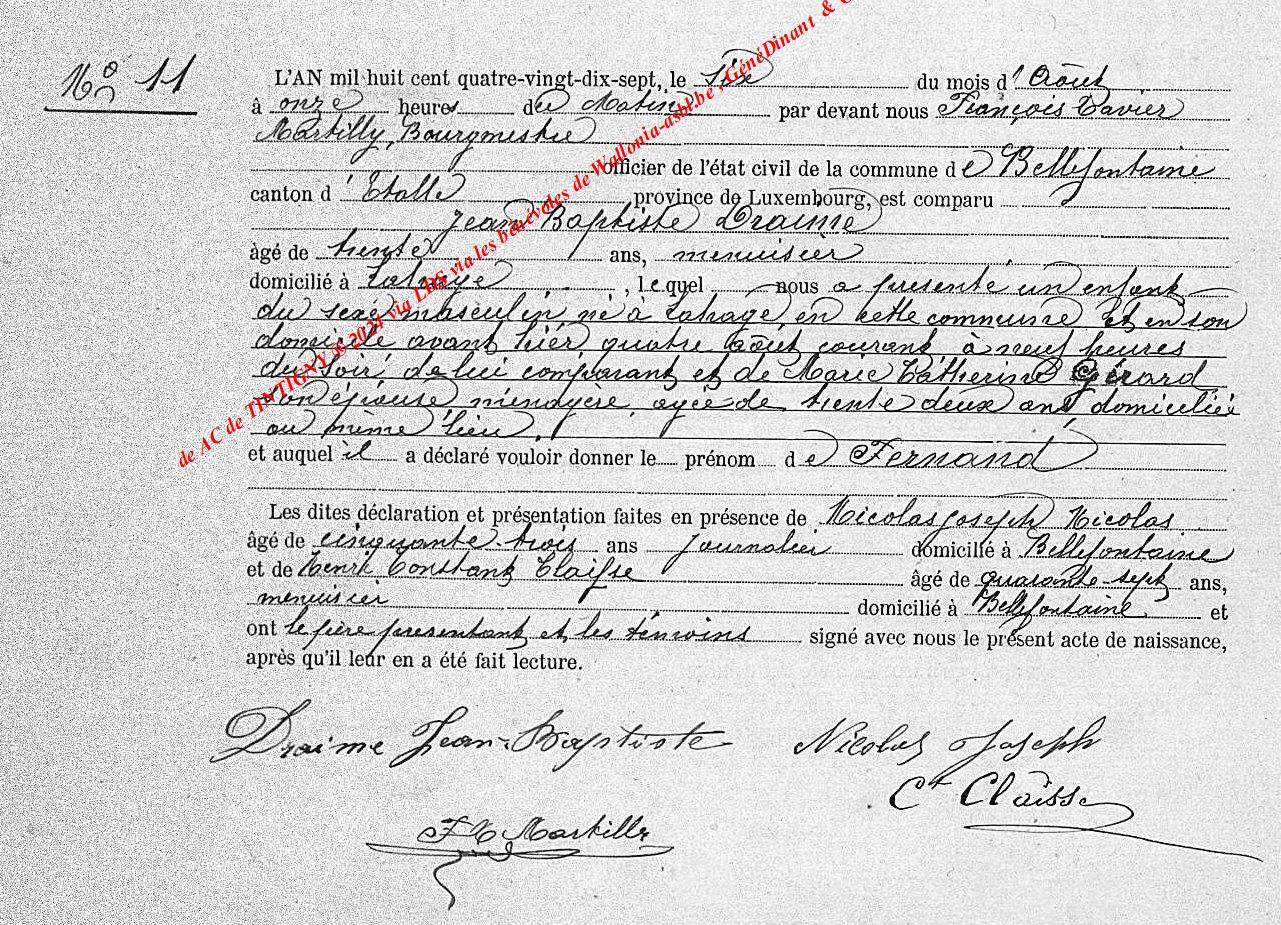 No 11
L'AN mil huit cent quatre-vingt-dix-sept, le six du mois d'Août
à onze heures du Matin par devant nous François Xavier
Martilly, Bourgmestre
officier de l'état civil de la commune de Bellefontaine
canton d'Etalle province de Luxembourg, est comparu
Jean Baptiste Draime
âgé de trente ans, menuisier
domicilié à Lahage, lequel nous a présenté un enfant
du sexe masculin né à Lahage en cette commune et en son
domicile avant hier quatre Août courant à neuf heures
du soir de lui comparant et de Marie Catherine Gérard
son épouse, ménagère, agée de trente deux ans domiciliée
au même lieu.
et auquel il a déclaré vouloir donner le prénom de Fernand
Les dites déclaration et présentation faites en présence de Nicolas Joseph Nicolas
âgé de cinquante-trois ans journalier domicilié à Bellefontaine
et de Henri Constant Claisse âgé de quarante-sept ans,
menuisier domicilié à Bellefontaine et
ont le père présentant et les témoins signé avec nous le présent acte de naissance,
après qu'il leur en a été fait lecture.
Draime Jean-Baptiste Nicolas Joseph
Ct Claisse
F X Martilly
de AC de TINTIGNY © 2024 via LDS via les bénévoles de Wallonia-asbl.be, GénéDinant &